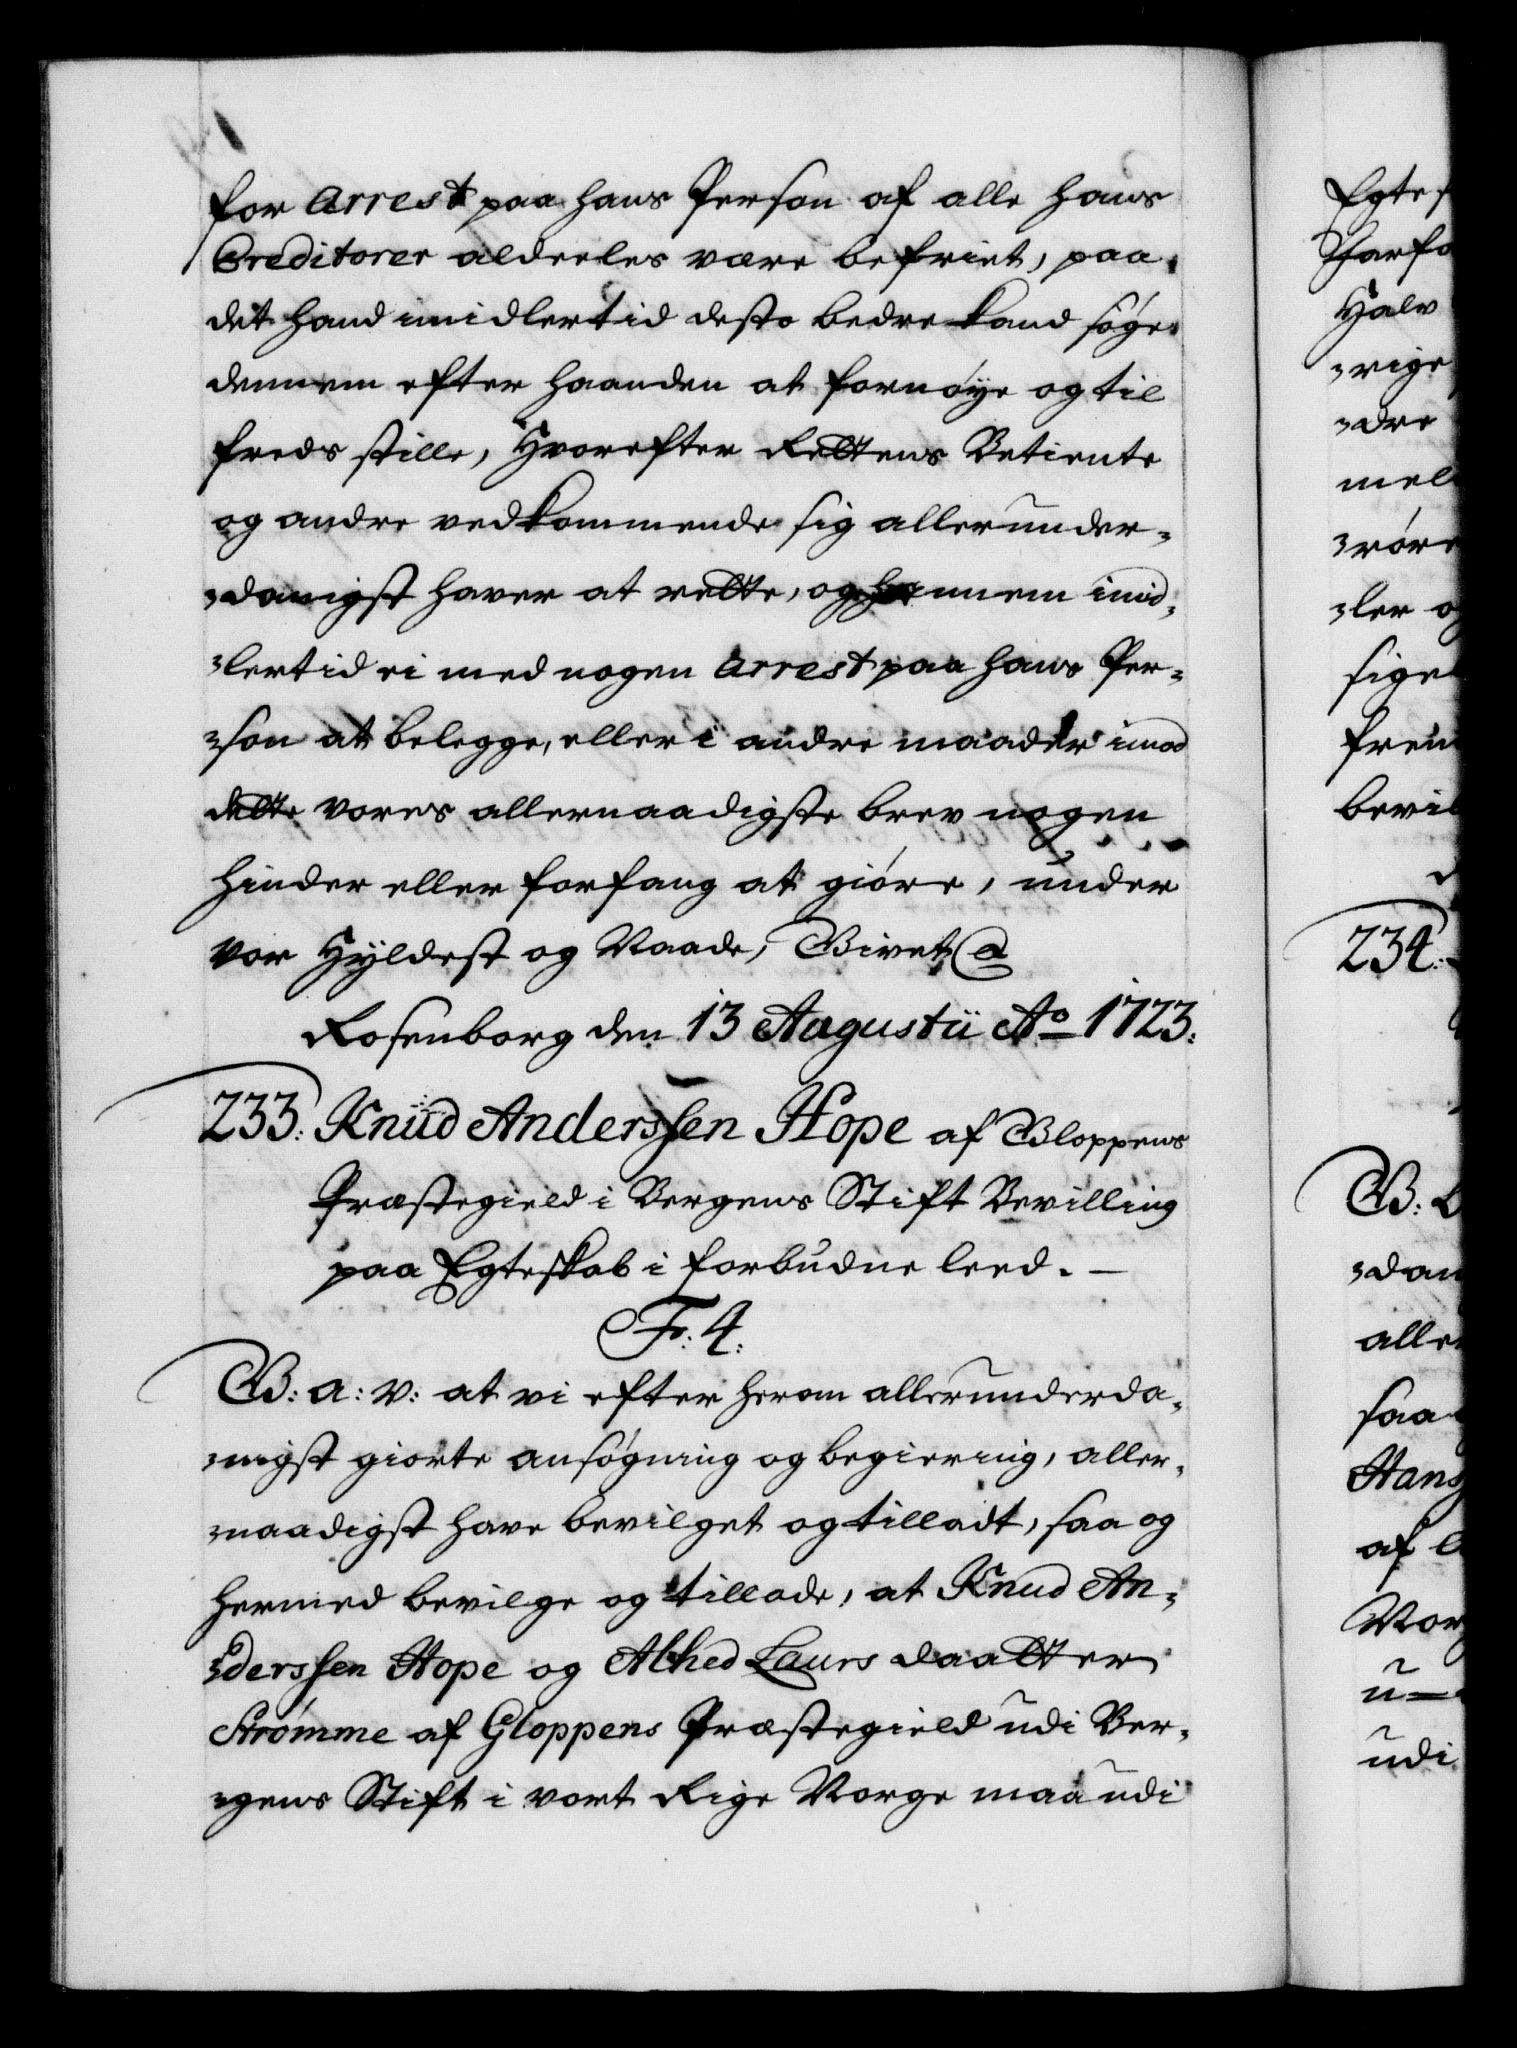 for Arrest paa hans Person af alle hans
Creditorer alderles være befriet, paa
det hand imidlertid desto bedre kand søge
dennem efter haanden at fornøye og til
freds stille, Hvorefter Rettens Betiente
og andre vedkommende sig allerunder-
-danigst haver at rette, og hannem imid-
-lertid ei med nogen Arrest paa hans Per-
-son at belegge, eller i andre maader imod
dette vores allernaadigste brev nogen
hinder eller forfang at giøre, under
vor Hyldest og Naade, Givet @
Rosenborg den 13 Augustii Ao 1723.
233. Knud Anderssen Hope af Gloppens
Præstegield i Bergens Stift Bevilling
paa Egteskab i forbudne leed. —
Fr: 4:
G: a: V: at vi efter herom allerunderda-
-nigst giorte ansøgning og begiering, aller-
-naadigst have bevilget og tilladt, saa og
hermed bevilge og tillade, at Knud An-
-derssen Hope og Alhed Laurs daatter
Strømme af Gloppens Præstegield udi Ber-
-gens Stift i vort Rige Norge maa udi
Egtes
Halv
-rige
-dre
mel
-røre
-ler og
sige
frem
bevil
234.
G:
-dan
alle
saa
Hans
af
Nor
u=
udi